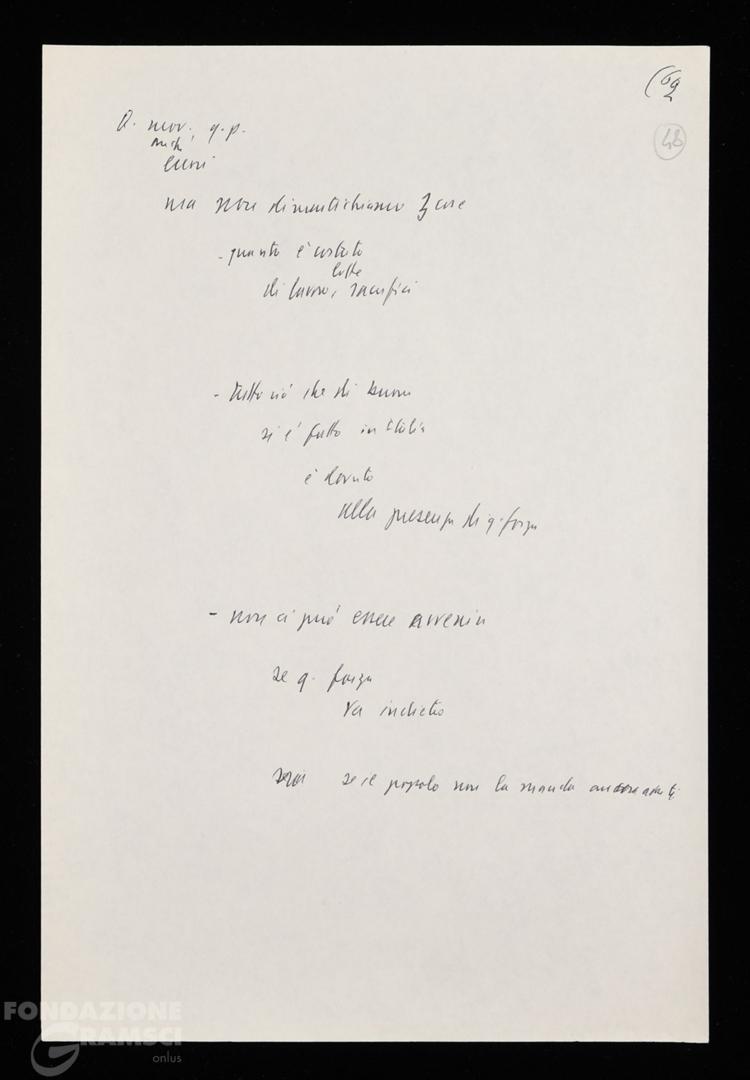 (62
48
Q. mov., q. p.
anche
errori
ma non dimentichiamo 3 cose
- quanto è costato
lotte
di lavoro, sacrifici
- tutto ciò che di buono
si è fatto in Italia
è dovuto
alla presenza di q. forza
- non ci può essere avvenire
se q. forza
va indietro
se il popolo non la manda ancora avanti
FONDAZIONE
GRAMSCI
onlus